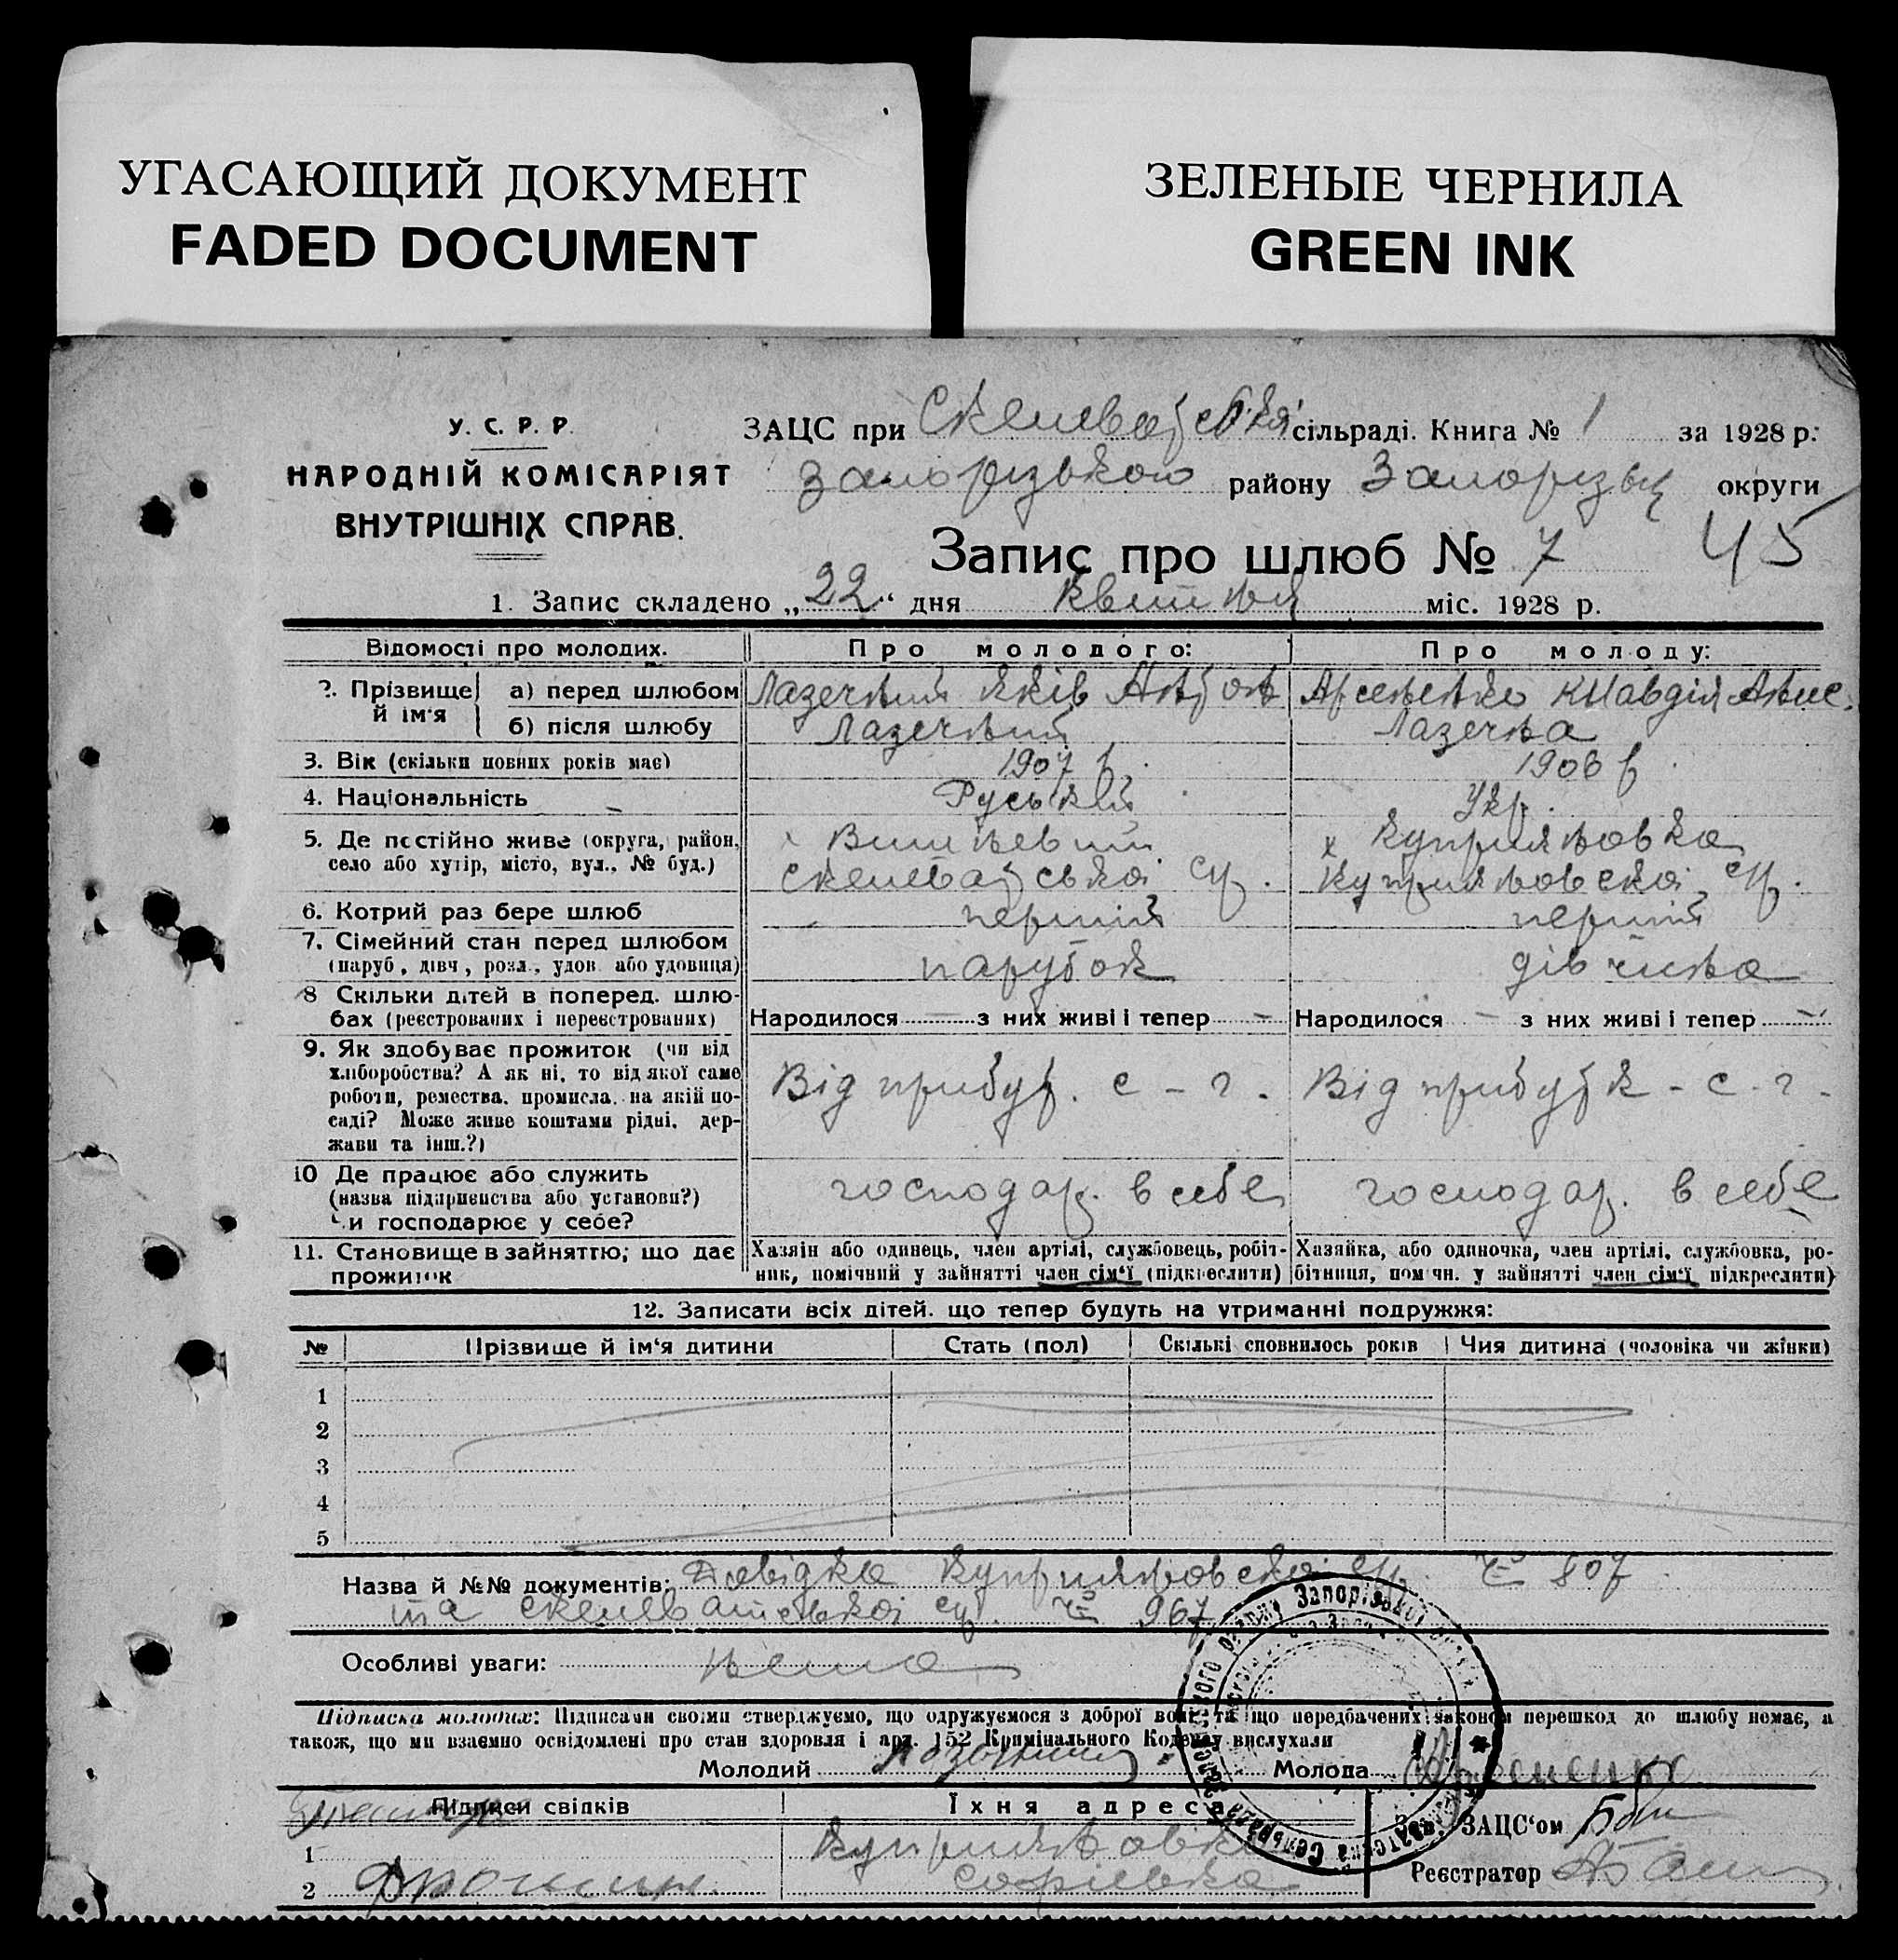 УГАСАЮЩИЙ ДОКУМЕНТ
FADED DOCUMENT
ЗЕЛЕНЫЕ ЧЕРНИЛА
GREEN INK
У. С. Р. Р.
НАРОДНІЙ КОМІСАРІЯТ
ВНУТРІШНІХ СПРАВ.
ЗАЦС при сільраді. Книга № 1 за 1928 р.
Запорізького району Запорізьк округи
Запис про шлюб № 7 45
1. Запис складено „22“ дня квітня міс. 1928 р.
Відомості про молодих. Про молодого: Про молоду:
2. Прізвище й ім‘я а) перед шлюбом Лазечний Яків Арсененко Клавдія
б) після шлюбу Лазечний Лазечна
3. Вік (скільки повних років має) 1907 р. 1906 р.
4. Національність Руський Укр.
5. Де постійно живе (округа, район, село або хутір, місто, вул., № буд.)
х х Куприяновка
Скелеватської ср. Куприяновскої ср.
6. Котрий раз бере шлюб перший перший
7. Сімейний стан перед шлюбом (паруб., дівч., розл., удов. або удовиця) парубок дівчина
8 Скільки дітей в поперед. шлюбах (реєстрованих і нереєстрованих) Народилося — з них живі і тепер — Народилося — з них живі і тепер —
9. Як здобуває прожиток (чи від хліборобства? А як ні, то від якої саме роботи, ремества, промисла, на якій посаді? Може живе коштами рідні, держави та інш.?)
Від прибут. с - г. Від прибутк - с - г.
10 Де працює або служить (назва підприємства або установи?) Чи господарює у себе?
господар. в себе господар. в себе
11. Становище в зайняттю, що дає прожиток
Хазяін або одинець, член артілі, службовець, робітник, помічний у зайнятті член сім‘ї (підкреслити)
Хазяйка, або одиночка, член артілі, службовка, робітниця, помічн. у зайнятті член сім‘ї підкреслити)
12. Записати всіх дітей, що тепер будуть на утриманні подружжя:
№ Прізвище й ім‘я дитини Стать (пол) Скількі сповнилось років Чия дитина (чоловіка чи жінки)
1
2
3
4
5
Назва й №№ документів: Довідка Куприяновскої ср. № 807
та Скелеватської ср. № 967
Особливі уваги: нема
Підписка молодих: Підписами своїми стверджуємо, що одружуємося з доброї волі та що передбачених законом перешкод до шлюбу немає, а
також, що ми взаємно освідомлені про стан здоровля і арт. 152 Кримінального Кодексу вислухали
Молодий Молода Арсененко
Підписи свідків Їхня адреса Зав. ЗАЦС‘ом
1 Куприяновка
2 Софіевка Реєстратор